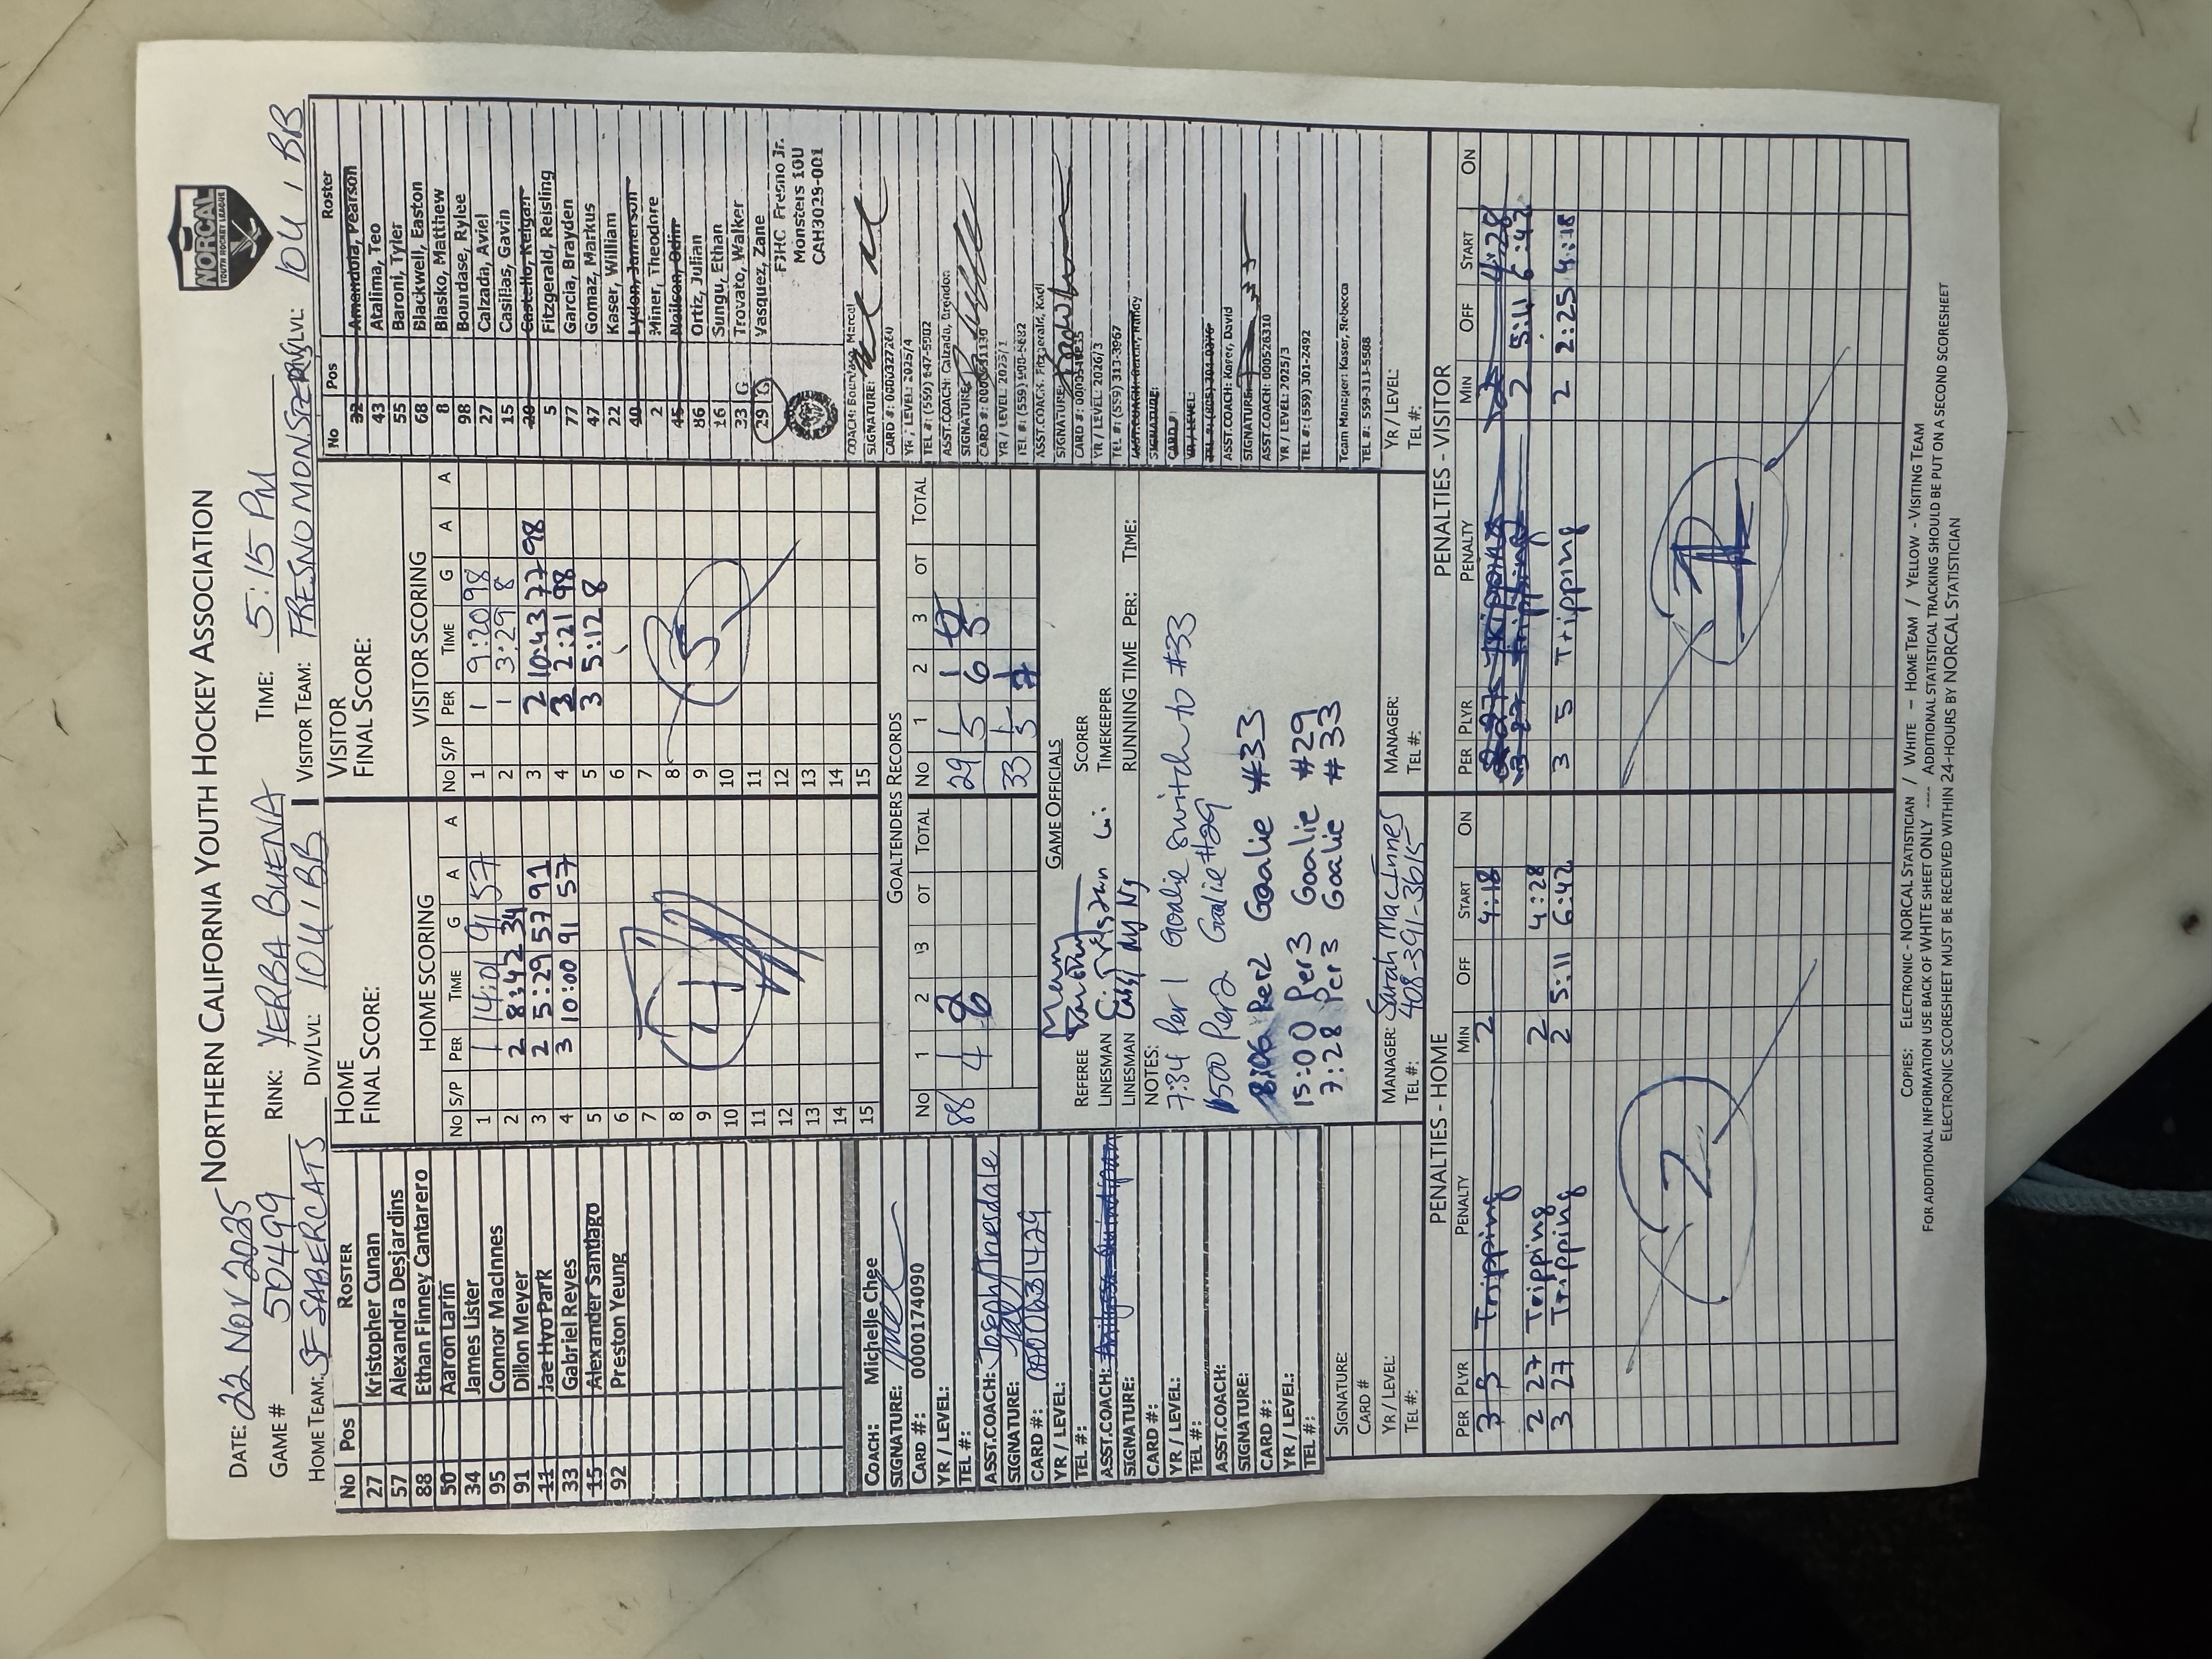 NORTHERN CALIFORNIA YOUTH HOCKEY ASSOCIATION
NORCAL
YOUTH HOCKEY LEAGUE
DATE: 22 NOV 2025
GAME # 50499 RINK: YERBA BUENA TIME: 5:15 PM
HOME TEAM: SF SABERCATS DIV/LVL: 10U / BB VISITOR TEAM: FRESNO MONSTERS DIV/LVL: 10U / BB
No Pos ROSTER
27 Kristopher Cunan
57 Alexandra Desjardins
88 Ethan Finney Cantarero
50 Aaron Larin
34 James Lister
95 Connor MacInnes
91 Dillon Meyer
11 Jae Hyo Park
33 Gabriel Reyes
15 Alexander Santiago
92 Preston Yeung
COACH: Michelle Chee
SIGNATURE:
CARD #: 0000174090
YR / LEVEL:
TEL #:
ASST.COACH: Joseph Tinesdale
SIGNATURE:
CARD #: 0000631429
YR / LEVEL:
TEL #:
ASST.COACH:
SIGNATURE:
CARD #:
YR / LEVEL:
TEL #:
ASST.COACH:
SIGNATURE:
CARD #:
YR / LEVEL:
TEL #:
SIGNATURE:
CARD #
YR / LEVEL:
TEL #:
HOME
FINAL SCORE:
HOME SCORING
No S/P PER TIME G A A
1 1 14:01 91 57
2 2 8:42 34
3 2 5:29 57 91
4 3 10:00 91 57
5
6
7
8
9
10
11
12
13
14
15
VISITOR
FINAL SCORE:
VISITOR SCORING
No S/P PER TIME G A A
1 1 9:20 98
2 1 3:29 8
3 2 10:43 77 98
4 3 2:21 98
5 3 5:12 8
6
7
8
9
10
11
12
13
14
15
GOALTENDERS RECORDS
No 1 2 3 OT TOTAL No 1 2 3 OT TOTAL
88 4 29
33
GAME OFFICIALS
REFEREE SCORER
LINESMAN TIMEKEEPER
LINESMAN RUNNING TIME PER: TIME:
NOTES:
7:34 Per 1 Goalie switch to #33
1500 Per 2 Goalie #29
8:06 Per2 Goalie #33
15:00 Per3 Goalie #29
7:28 Per3 Goalie #33
MANAGER: Sarah MacInnes
TEL #: 408-391-3615
MANAGER:
TEL #:
No Pos Roster
32 Amendola, Pearson
43 Atalima, Teo
55 Baroni, Tyler
68 Blackwell, Easton
8 Blasko, Matthew
98 Boundase, Rylee
27 Calzada, Aviel
15 Casillas, Gavin
20 Castello, Keigan
5 Fitzgerald, Reising
77 Garcia, Brayden
47 Gomaz, Markus
22 Kaser, William
40 Lydon, Jamerson
2 Miner, Theodore
45 Neilson, Odin
86 Ortiz, Julian
16 Sungu, Ethan
33 G Trovato, Walker
29 G Vasquez, Zane
FJHC Fresno Jr.
Monsters 10U
CAH3029-001
SIGNATURE:
YR / LEVEL: 2025/4
TEL #: (559) 647-5902
ASST.COACH: Calzada, Brandon
SIGNATURE:
YR / LEVEL: 2025/1
ASST.COACH: Fitzgerald, Kadi
SIGNATURE:
YR / LEVEL: 2026/3
TEL #: (559) 313-3967
SIGNATURE:
CARD #:
YR / LEVEL:
ASST.COACH: Kaser, David
SIGNATURE:
ASST.COACH: 000526310
YR / LEVEL: 2025/3
TEL #: (559) 301-2492
Team Manager: Kaser, Rebecca
TEL #: 559-313-5588
YR / LEVEL:
TEL #:
PENALTIES - HOME
PER PLYR PENALTY MIN OFF START ON
3 5 Tripping 2 4:18
2 27 Tripping 2 4:28
3 27 Tripping 2 5:11 6:42
PENALTIES - VISITOR
PER PLYR PENALTY MIN OFF START ON
Tripping 4:28
3 27 Tripping 2 5:11 6:42
3 5 Tripping 2 2:25 4:18
COPIES: ELECTRONIC - NORCAL STATISTICIAN / WHITE – HOME TEAM / YELLOW - VISITING TEAM
FOR ADDITIONAL INFORMATION USE BACK OF WHITE SHEET ONLY ---- ADDITIONAL STATISTICAL TRACKING SHOULD BE PUT ON A SECOND SCORESHEET
ELECTRONIC SCORESHEET MUST BE RECEIVED WITHIN 24-HOURS BY NORCAL STATISTICIAN